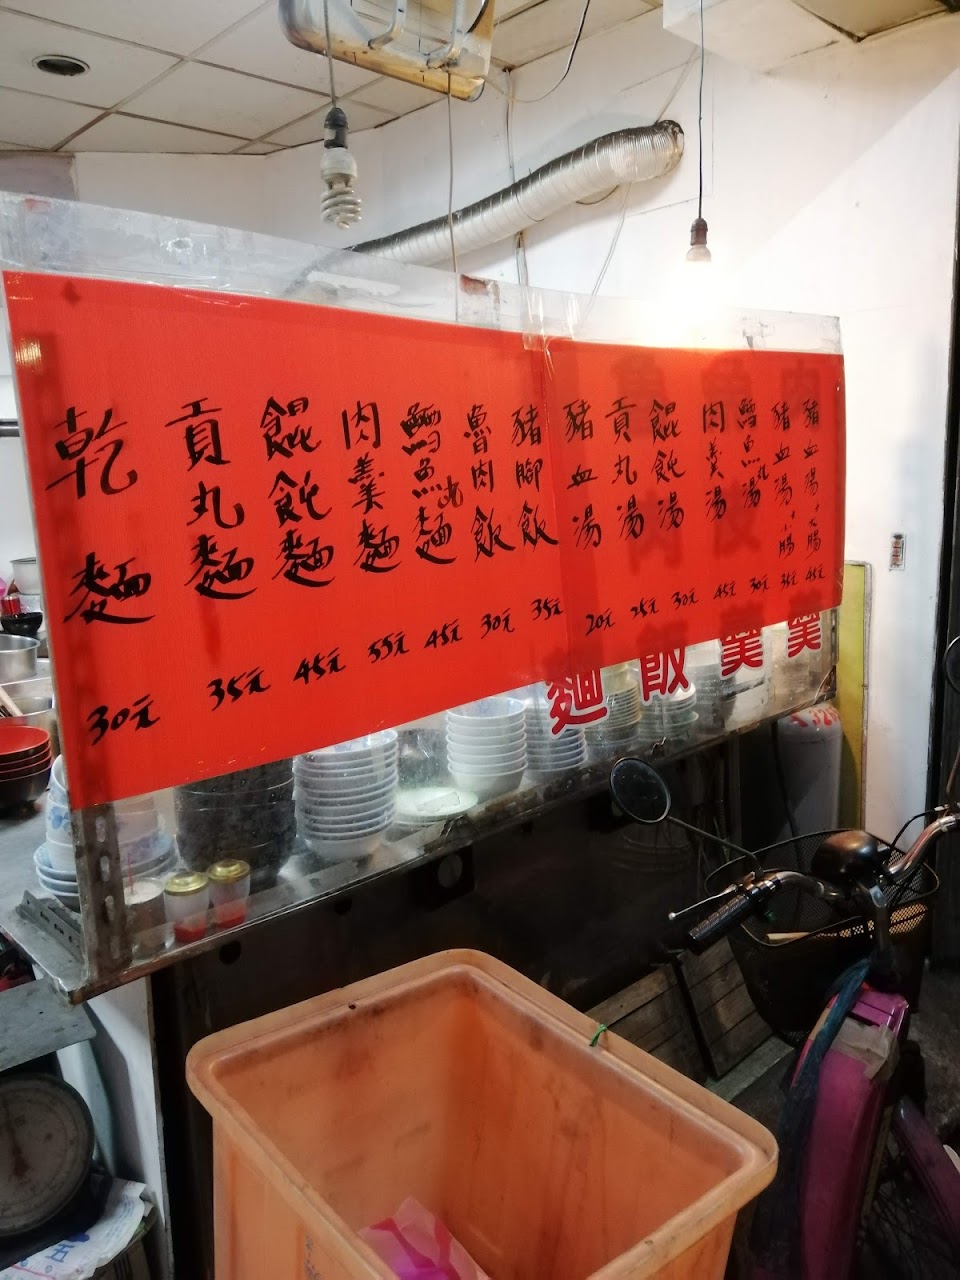 乾麵 30元
貢丸麵 35元
餛飩麵 45元
肉羹麵 55元
鱈魚丸麵 45元
魯肉飯 30元
豬腳飯 35元
豬血湯 20元
貢丸湯 25元
餛飩湯 30元
肉羹湯 45元
鱈魚丸湯 30元
豬血湯+小腸 35元
豬血湯+大腸 45元
麵
飯
羹
羹